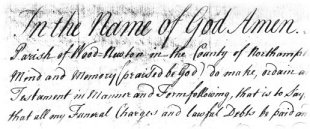 In the Name of God Amen.
Parish of Wood-Newton in the County of Northamp
Mind and Memory (praised be God) do make, ordain a
Testament in Manner and Form following, that is to Say
that all my Funeral Charges and lawful Debts be paid an